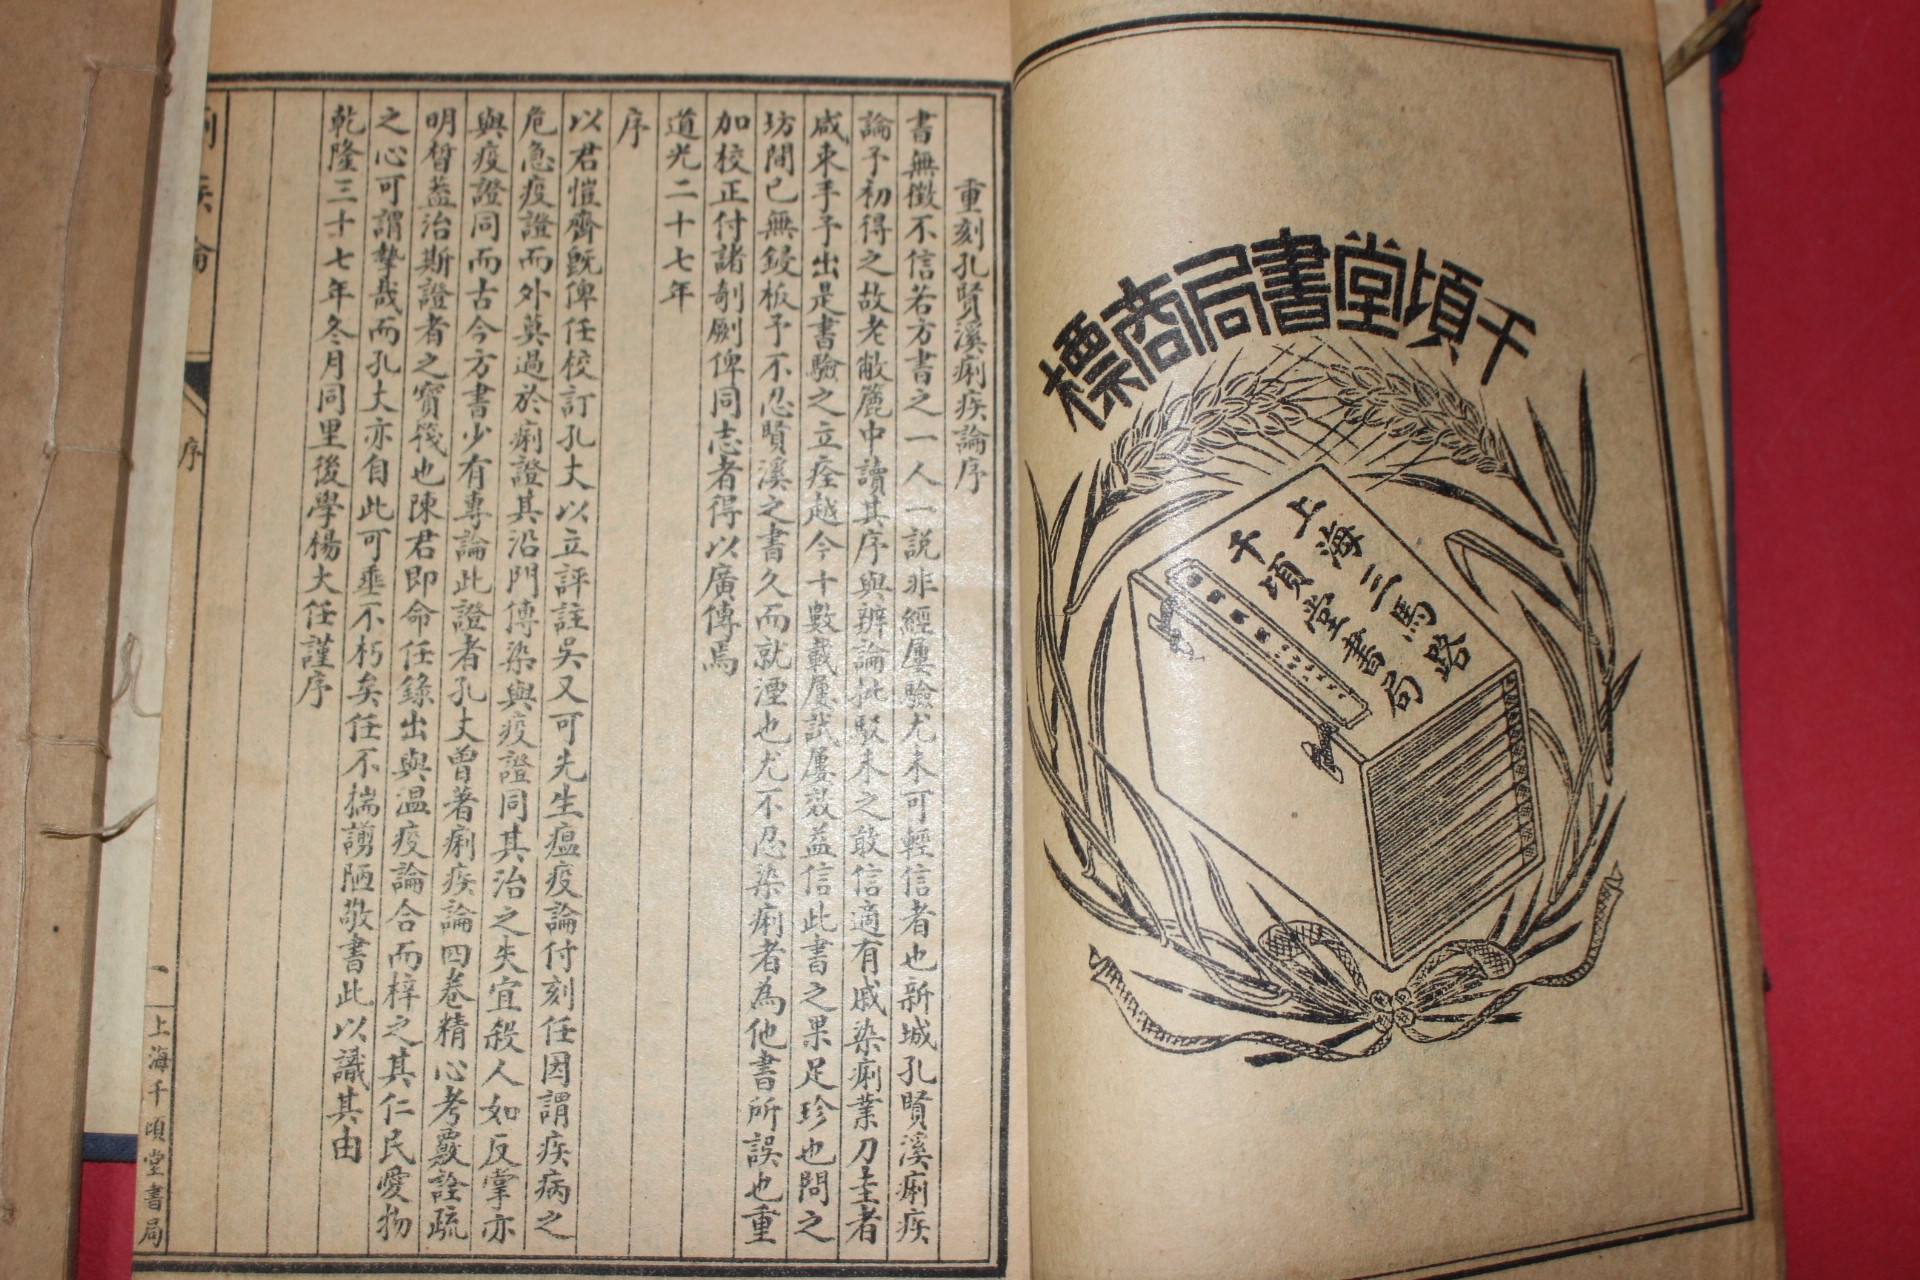 千頃堂書局商標
上海三馬路
千頃堂書局
重刻孔賢溪痢疾論序
書無徵不信若方書之一人一説非經屢驗尤未可輕信者也新城孔賢溪痢疾
論予初得之故老敝簏中讀其序與辨論批駁未之敢信適有戚染痢業刀圭者
咸束手予出是書驗之立痊越今十數載屢試屢效益信此書之果足珍也問之
坊間已無鋟板予不忍賢溪之書久而就湮也尤不忍染痢者為他書所誤也重
加校正付諸剞劂俾同志者得以廣傳焉
道光二十七年
序
以君愷齋既俾任校訂孔丈以立評註吳又可先生瘟疫論付刻任因謂疾病之
危急疫證而外莫過於痢證其沿門傳染與疫證同其治之失宜殺人如反掌亦
與疫證同而古今方書少有專論此證者孔丈曾著痢疾論四卷精心考覈詮疏
明晳蓋治斯證者之寶筏也陳君即命任錄出與温疫論合而梓之其仁民愛物
之心可謂摯哉而孔丈亦自此可垂不朽矣任不揣謭陋敬書此以識其由
乾隆三十七年冬月同里後學楊大任謹序
痢疾論
序
一
上海千頃堂書局